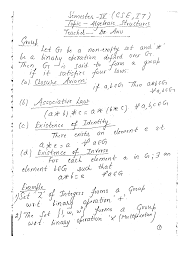 Semester-IV (CSE, IT)
Topic - Algebraic Structures
Teacher - Dr Anu
Group
Let G be a non-empty set and *
be a binary operation defined over G.
Then G is said to form a group
if it satisfies four laws.
(a) Closure Axiom if a,b∈G Then a*b∈G
∀ a,b∈G
(b) Associative Law
(a*b)*c = a*(b*c) ∀ a,b,c∈G
(c) Existence of Identity
There exists an element e s.t
a*e = a ∀ a∈G
(d) Existence of Inverse
For each element a in G, ∃ an
element b∈G such that
a*b = e ∀ a∈G
Example
1) Set Z of Integers forms a Group
w.r.t binary operation '+'
2) The set {1, w, w²} forms a Group
w.r.t binary operation 'x' (Multiplication)